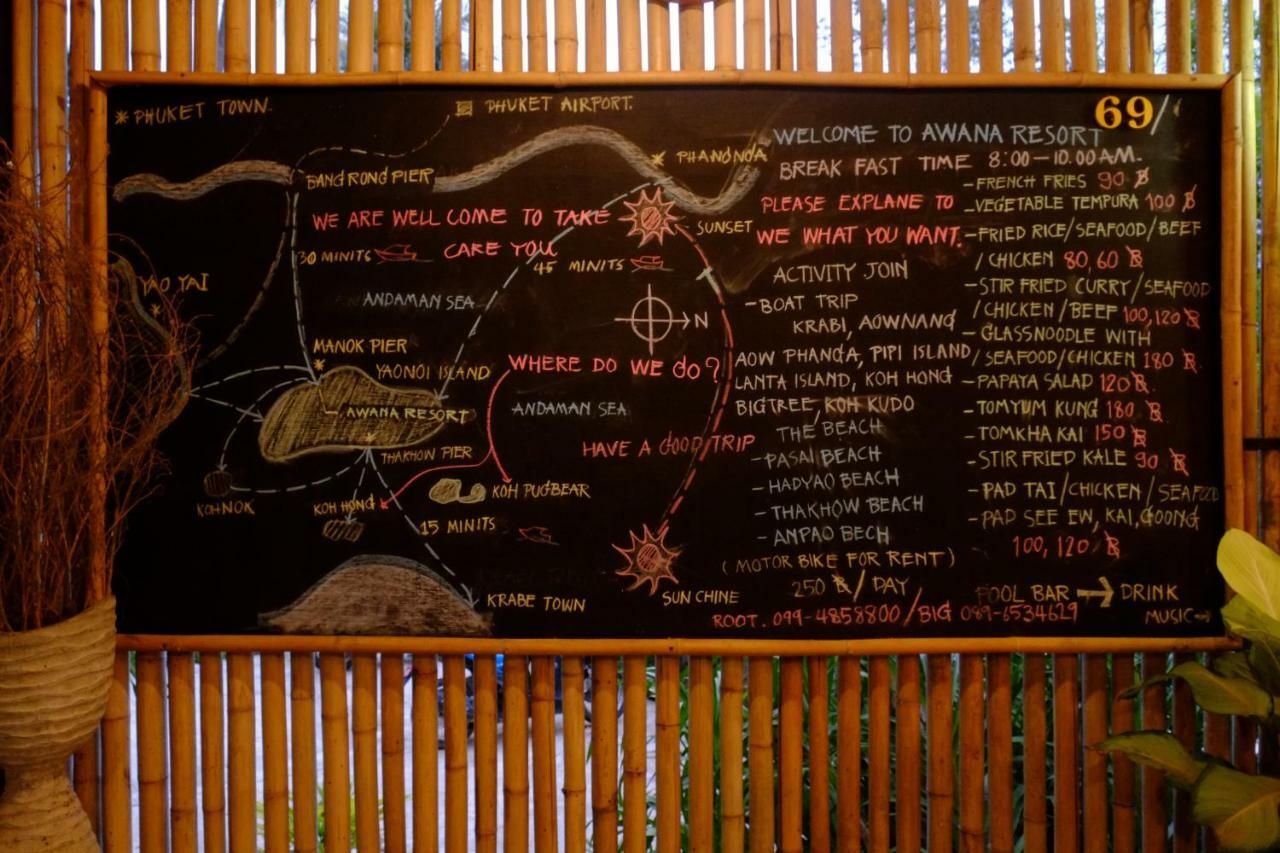 69/
* PHUKET TOWN.
PHUKET AIRPORT.
PHANGNGA
BANGRONG PIER
WE ARE WELL COME TO TAKE
CARE YOU
SUNSET
30 MINITS
45 MINITS
YAO YAI
ANDAMAN SEA
N
MANOK PIER
YAONOI ISLAND
WHERE DO WE GO?
AWANA RESORT
ANDAMAN SEA
THAKHOW PIER
HAVE A GOOD TRIP
KOH NOK
KOH HONG
KOH PUGBEAR
15 MINITS
KRABE TOWN
SUN CHINE
WELCOME TO AWANA RESORT
BREAK FAST TIME 8:00-10.00 AM.
PLEASE EXPLANE TO
WE WHAT YOU WANT.
ACTIVITY JOIN
-BOAT TRIP
KRABI, AOWNANG
AOW PHANGA, PIPI ISLAND
LANTA ISLAND, KOH HONG
BIGTREE, KOH KUDO
THE BEACH
-PASAI BEACH
-HADYAO BEACH
-THAKHOW BEACH
-ANPAO BECH
(MOTOR BIKE FOR RENT)
250 ฿/DAY
ROOT. 099-4858800/BIG 089-6534629
-FRENCH FRIES 90 ฿
-VEGETABLE TEMPURA 100 ฿
-FRIED RICE/SEAFOOD/BEEF
/CHICKEN 80,60 ฿
-STIR FRIED CURRY/SEAFOOD
/CHICKEN/BEEF 100,120 ฿
-GLASSNOODLE WITH
/SEAFOOD/CHICKEN 180 ฿.
-PAPAYA SALAD 120 ฿.
-TOMYUM KUNG 180 ฿
-TOMKHA KAI 150 ฿
-STIR FRIED KALE 90 ฿
-PAD TAI/CHICKEN/SEAFOOD
-PAD SEE EW, KAI, GOONG
100, 120 ฿
POOL BAR → DRINK
MUSIC→